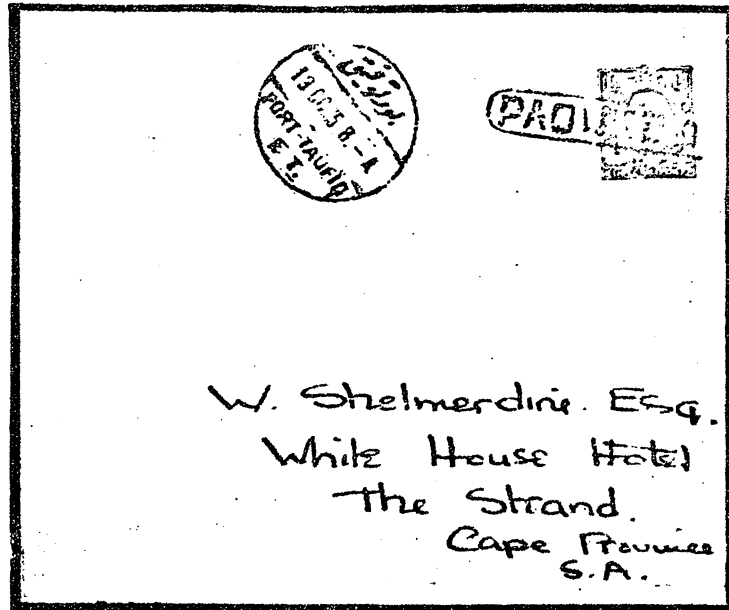 بور توفيق
13 OC.38.-A
PORT-TAUFIQ
E.T.
W. Shelmerdine. Esq.
White House Hotel
The Strand.
Cape Province
S.A.